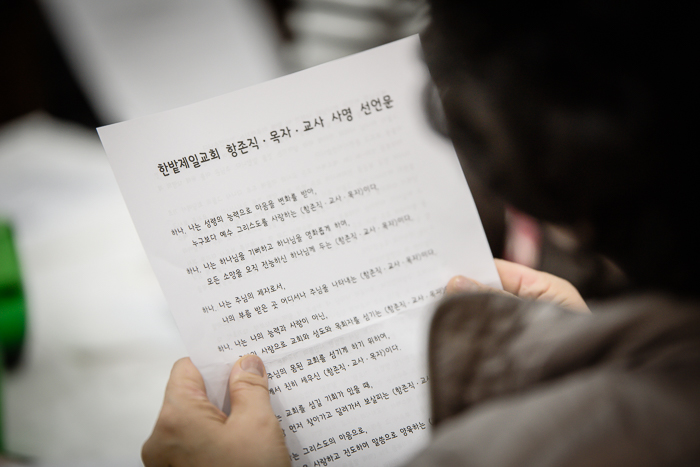 한밭제일교회 항존직 · 목자 · 교사 사명 선언문
하나, 나는 성령의 능력으로 마음을 변화를 받아,
누구보다 예수 그리스도를 사랑하는 (항존직 · 교사 · 목자)이다.
하나, 나는 하나님을 기뻐하고 하나님을 영화롭게 하며,
모든 소망을 오직 전능하신 하나님께 두는 (항존직 · 교사 · 목자)이다.
하나, 나는 주님의 제자로서,
나의 부름 받은 곳 어디서나 주님을 나타내는 (항존직 · 교사 · 목자)이다.
하나, 나는 나의 능력과 사랑이 아닌,
사랑으로 교회와 성도와 목회자를 섬기는 (항존직 · 교사 · 목자)
주님의 몸된 교회를 섬기게 하기 위하여,
에서 친히 세우신 (항존직 · 교사 · 목자)이다.
교회를 섬길 기회가 있을 때,
먼저 찾아가고 달려가서 보살피는 (항존직 · 교사
는 그리스도의 마음으로,
사랑하고 전도하여 말씀으로 양육하는